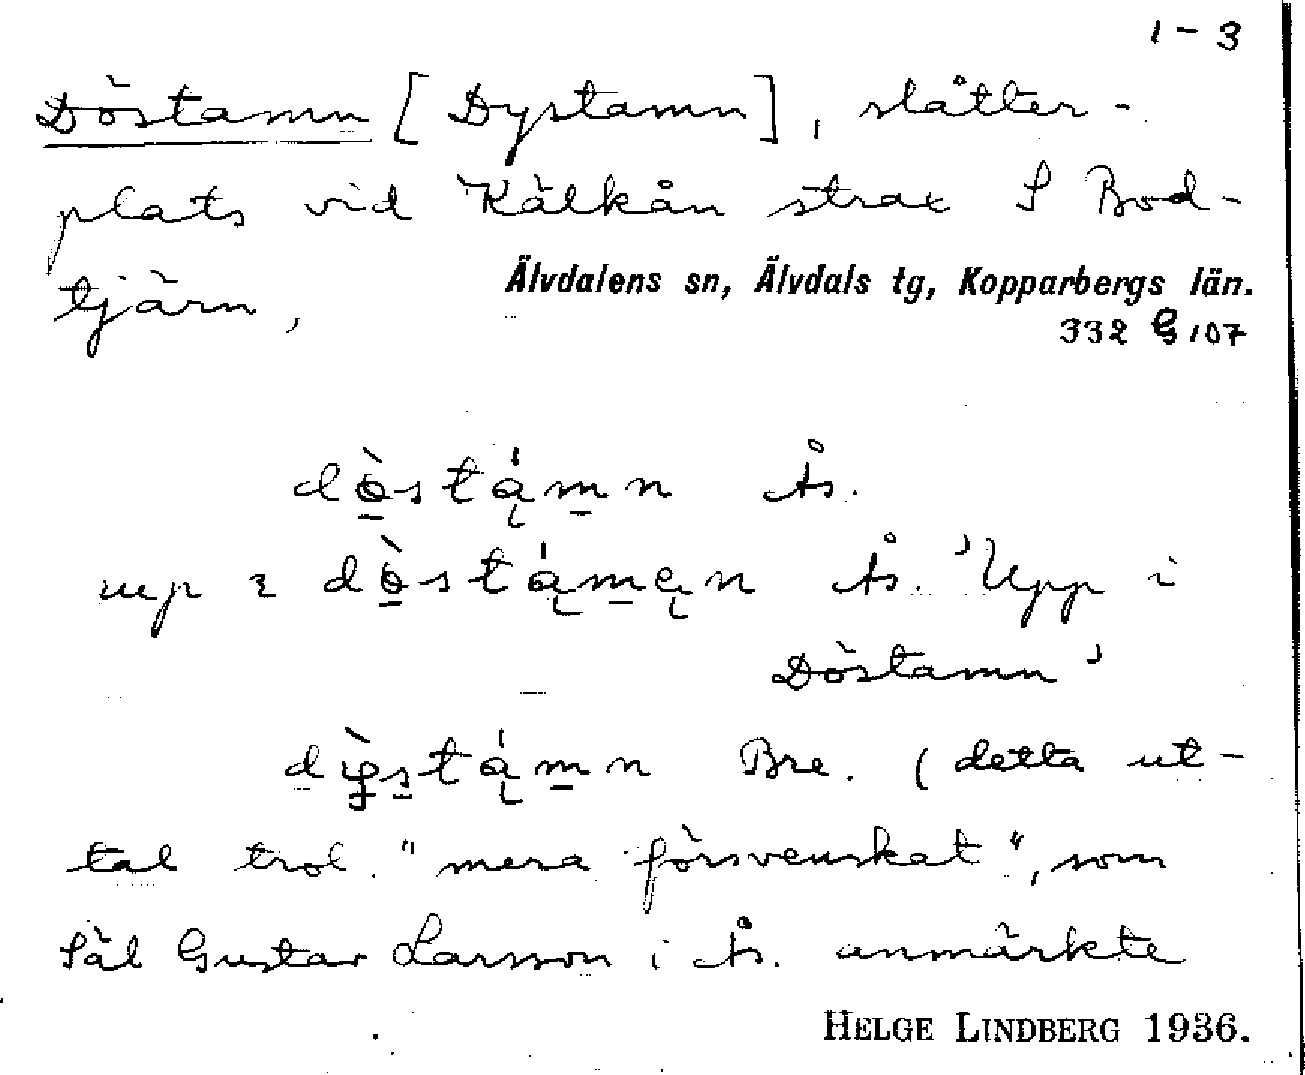 1-3
Döstamn [Dystamn], slåtter-
plats vid Kälkån strax S Bod-
tjärn,
Älvdalens sn, Älvdals tg, Kopparbergs län.
332 G 107
Ås.
up Ås. 'Upp i
Döstamn'
Bre. (detta ut-
tal trol. "mera försvenskat", som
Säl Gustav Larsson i Ås. anmärkte
HELGE LINDBERG 1936.